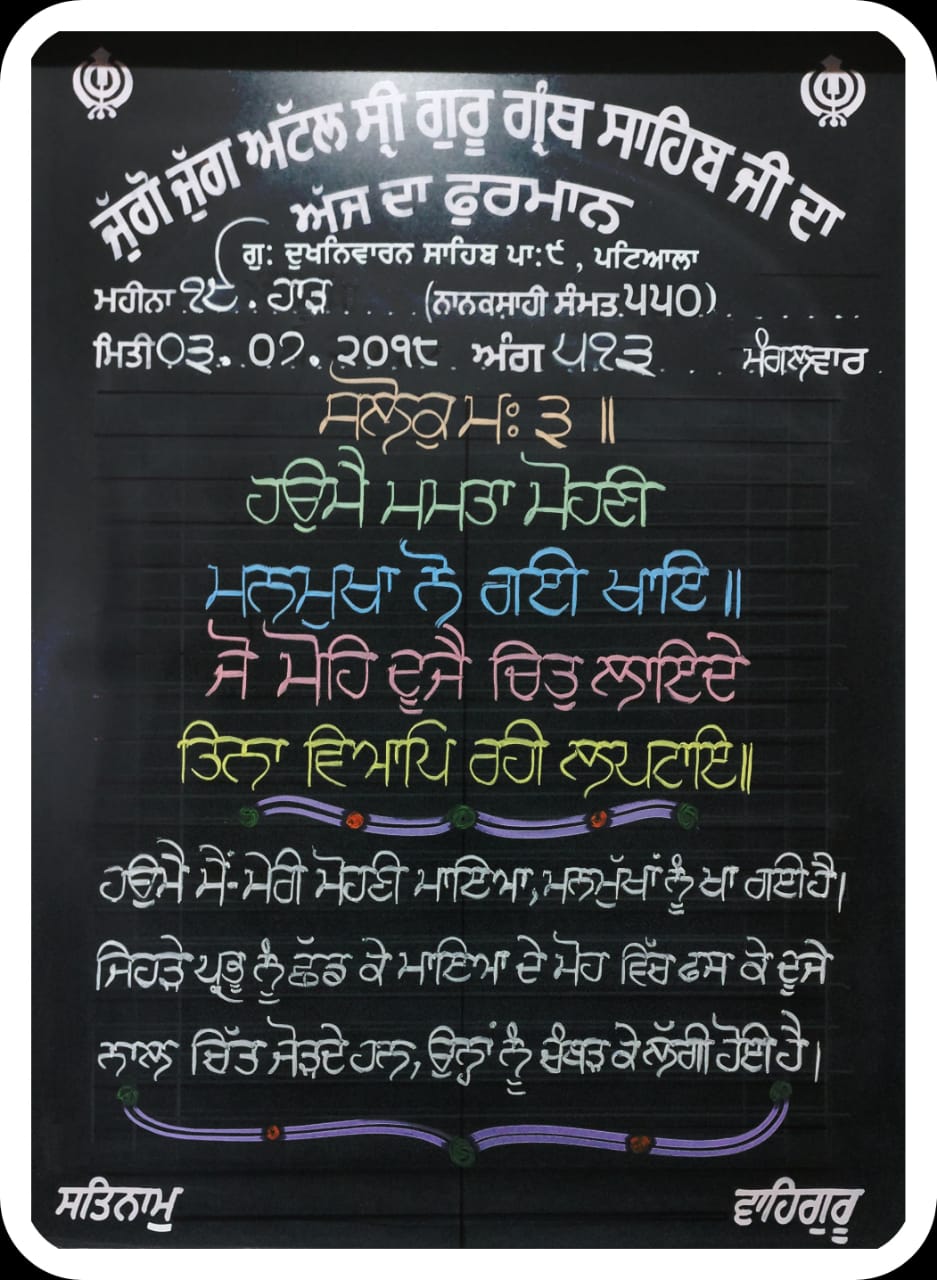 ਜੁੱਗੋ ਜੁੱਗ ਅਟੱਲ ਸ੍ਰੀ ਗੁਰੂ ਗ੍ਰੰਥ ਸਾਹਿਬ ਜੀ ਦਾ
ਅੱਜ ਦਾ ਫੁਰਮਾਨ
ਗੁ: ਦੁਖਨਿਵਾਰਨ ਸਾਹਿਬ ਪਾ:੯ , ਪਟਿਆਲਾ
ਮਹੀਨਾ ੧੯. ਹਾੜ (ਨਾਨਕਸ਼ਾਹੀ ਸੰਮਤ ੫੫੦)
ਮਿਤੀ ੦੩. ੦੭. ੨੦੧੮ ਅੰਗ ੫੧੩ ਮੰਗਲਵਾਰ
ਸਲੋਕੁ ਮਃ ੩ ॥
ਹਉਮੈ ਮਮਤਾ ਮੋਹਣੀ
ਮਨਮੁਖਾ ਨੋ ਗਈ ਖਾਇ॥
ਜੋ ਮੋਹਿ ਦੂਜੈ ਚਿਤੁ ਲਾਇਦੇ
ਤਿਨਾ ਵਿਆਪਿ ਰਹੀ ਲਪਟਾਇ॥
ਹਉਮੈ ਮੈਂ-ਮੇਰੀ ਮੋਹਣੀ ਮਾਇਆ, ਮਨਮੁੱਖਾਂ ਨੂੰ ਖਾ ਗਈ ਹੈ।
ਜਿਹੜੇ ਪ੍ਰਭੂ ਨੂੰ ਛੱਡ ਕੇ ਮਾਇਆ ਦੇ ਮੋਹ ਵਿੱਚ ਫਸ ਕੇ ਦੂਜੇ
ਨਾਲ ਚਿੱਤ ਜੋੜਦੇ ਹਨ, ਉਨ੍ਹਾਂ ਨੂੰ ਚੰਬੜ ਕੇ ਲੱਗੀ ਹੋਈ ਹੈ।
ਸਤਿਨਾਮੁ ਵਾਹਿਗੁਰੂ